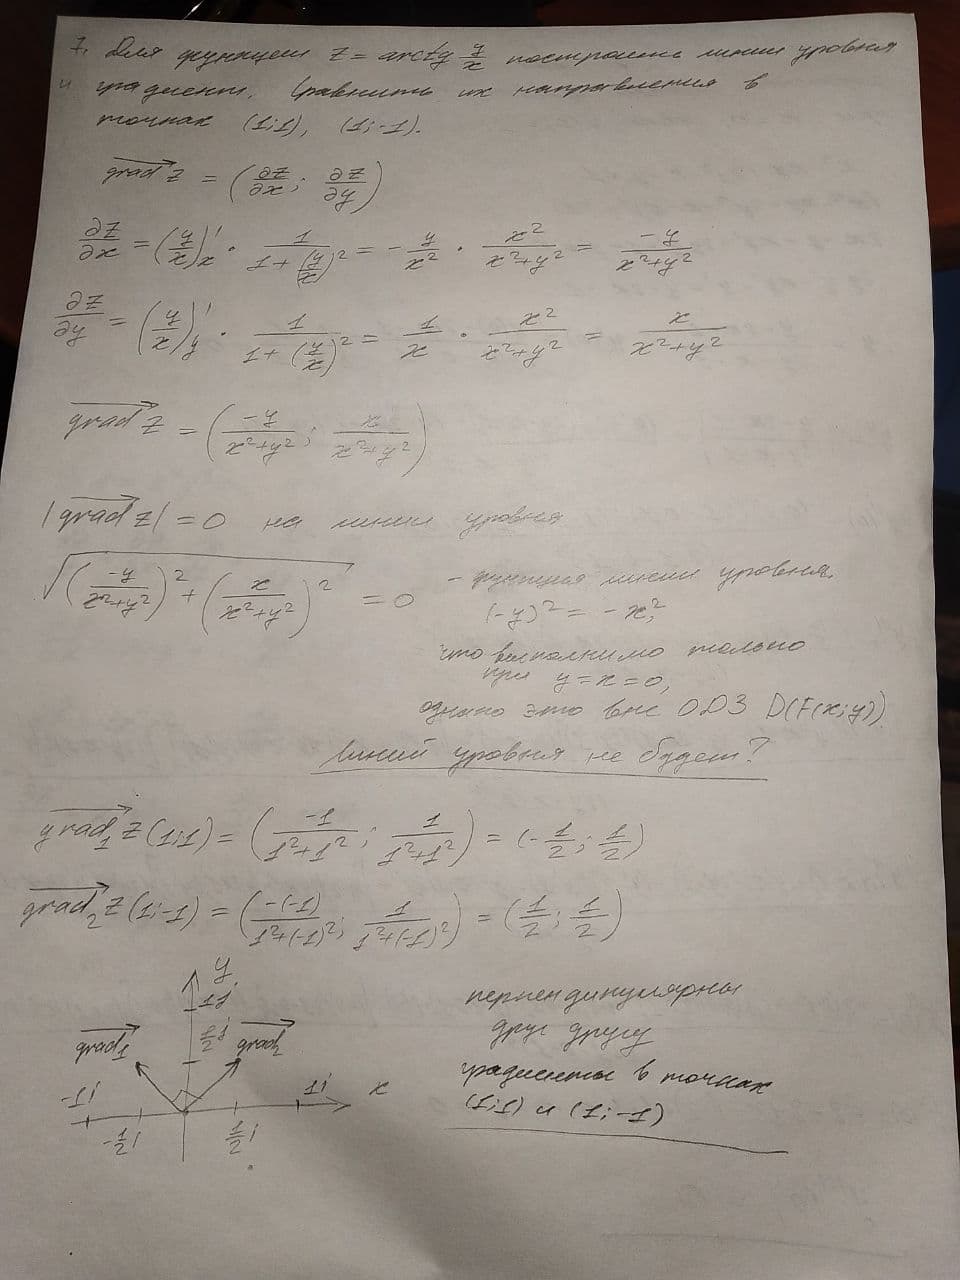 7. Для функции z = arctg y/x построить линии уровня
и градиент. Сравнить их направления в
точках (1;1), (1;-1).
grad z = (∂z/∂x; ∂z/∂y)
∂z/∂x = (y/x)'x · 1/(1+(y/x)²) = - y/x² · x²/(x²+y²) = -y/(x²+y²)
∂z/∂y = (y/x)'y · 1/(1+(y/x)²) = 1/x · x²/(x²+y²) = x/(x²+y²)
grad z = (-y/(x²+y²); x/(x²+y²))
|grad z| = 0 на линии уровня
√((-y/(x²+y²))² + (x/(x²+y²))²) = 0
- функция линии уровня.
(-y)² = -x²,
что выполнимо только
при y=x=0,
однако это вне ОДЗ D(F(x;y)).
Линий уровня не будет?
grad₁ z(1;1) = (-1/(1²+1²); 1/(1²+1²)) = (-1/2; 1/2)
grad₂ z(1;-1) = (-(-1)/(1²+(-1)²); 1/(1²+(-1)²)) = (1/2; 1/2)
y
1j
1/2 j
grad1
grad2
-1i
-1/2 i
1/2 i
1i
x
перпендикулярны
друг другу
градиенты в точках
(1;1) и (1;-1)